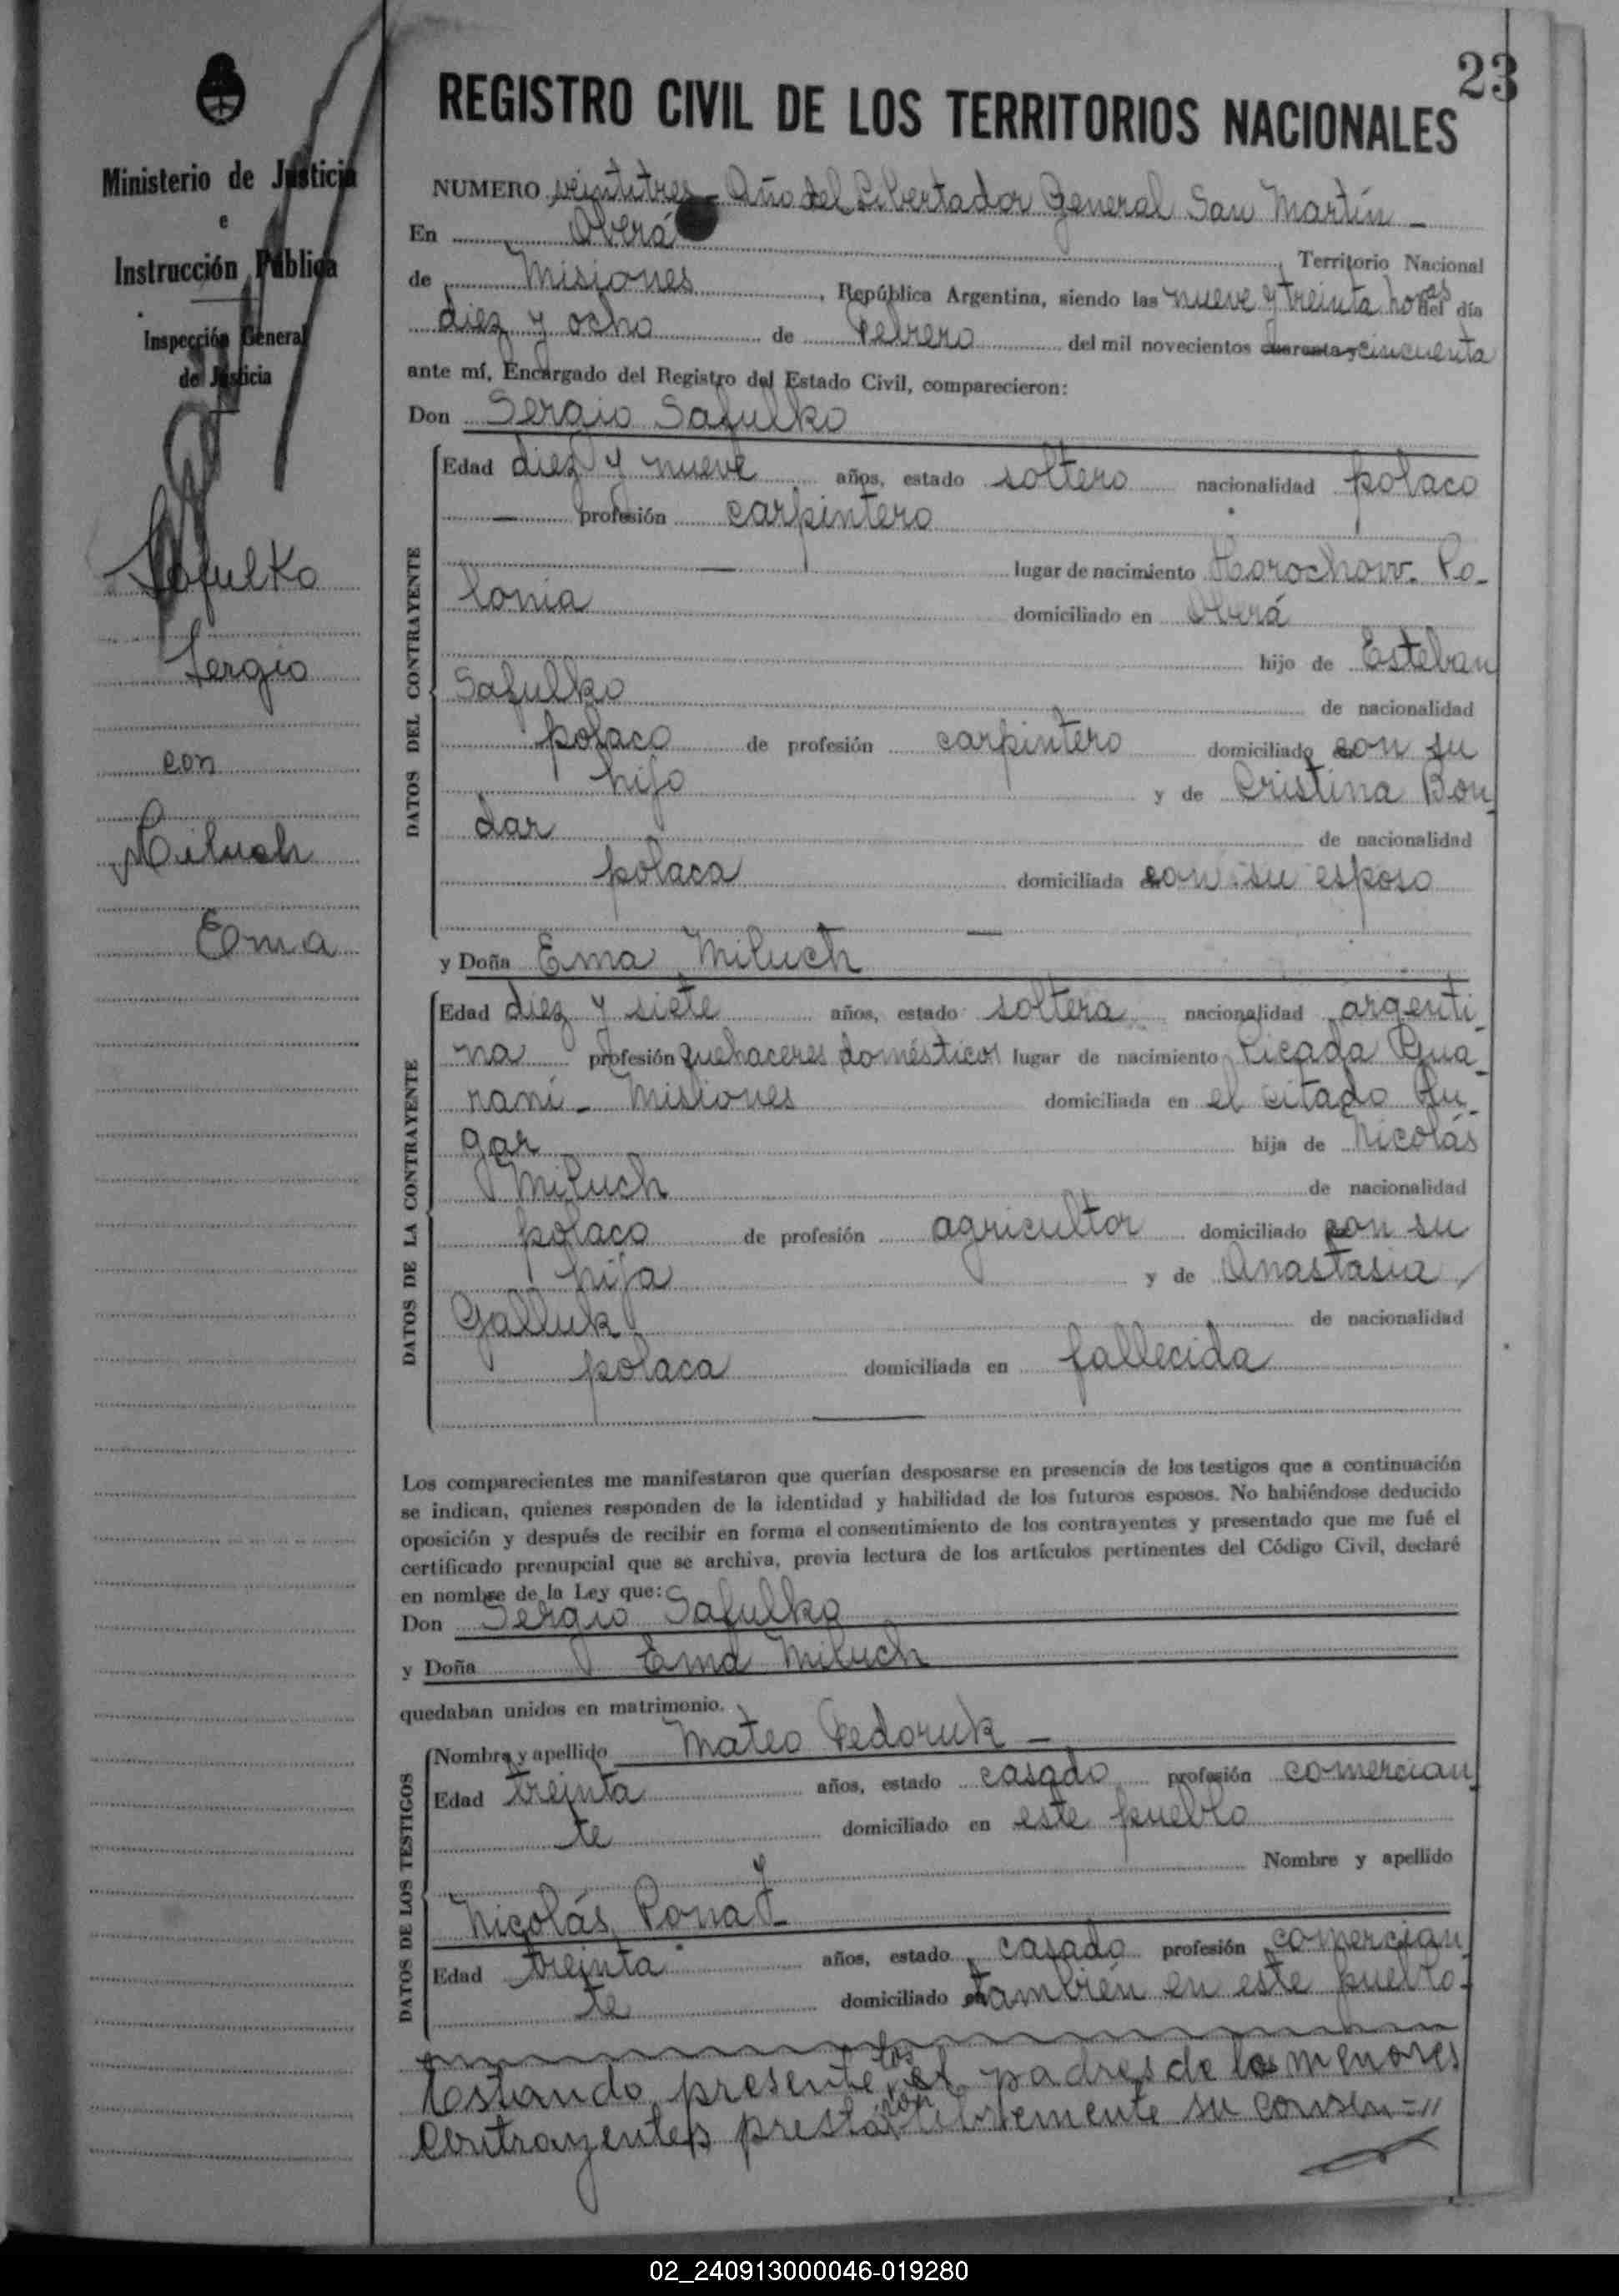 23
Ministerio de Justicia
e
Instrucción Pública
Inspección General
de Justicia
Safulko
Sergio
con
Miluch
Ema
REGISTRO CIVIL DE LOS TERRITORIOS NACIONALES
NUMERO veintitres - Año del Libertador General San Martín -
En Oberá, Territorio Nacional
de Misiones, República Argentina, siendo las nueve y treinta horas del día
diez y ocho de Febrero del mil novecientos cuarenta y cincuenta
ante mí, Encargado del Registro del Estado Civil, comparecieron:
Don Sergio Safulko
DATOS DEL CONTRAYENTE
Edad diez y nueve años, estado soltero nacionalidad polaco
— profesión carpintero
— lugar de nacimiento Horochow. Po-
lonia domiciliado en Oberá
hijo de Esteban
Safulko de nacionalidad
polaco de profesión carpintero domiciliado con su
hijo y de Cristina Bon
dar de nacionalidad
polaca domiciliada con su esposo
—
y Doña Ema Miluch
DATOS DE LA CONTRAYENTE
Edad diez y siete años, estado soltera nacionalidad argenti-
na profesión quehaceres domésticos lugar de nacimiento Picada Gua-
raní - Misiones domiciliada en el citado lu-
gar hija de Nicolás
Miluch de nacionalidad
polaco de profesión agricultor domiciliado con su
hija y de Anastasia
Galluk de nacionalidad
polaca domiciliada en fallecida
—
Los comparecientes me manifestaron que querían desposarse en presencia de los testigos que a continuación
se indican, quienes responden de la identidad y habilidad de los futuros esposos. No habiéndose deducido
oposición y después de recibir en forma el consentimiento de los contrayentes y presentado que me fué el
certificado prenupcial que se archiva, previa lectura de los artículos pertinentes del Código Civil, declaré
en nombre de la Ley que:
Don Sergio Safulko
y Doña Ema Miluch
quedaban unidos en matrimonio.
DATOS DE LOS TESTIGOS
Nombre y apellido Mateo Fedoruk -
Edad treinta años, estado casado profesión comercian
te domiciliado en este pueblo
y Nombre y apellido
Nicolás Ponaj -
Edad treinta años, estado casado profesión comercian
te domiciliado también en este pueblo.
Estando presente los padres de los menores
Contrayentes prestaron libremente su consen="
02_240913000046-019280